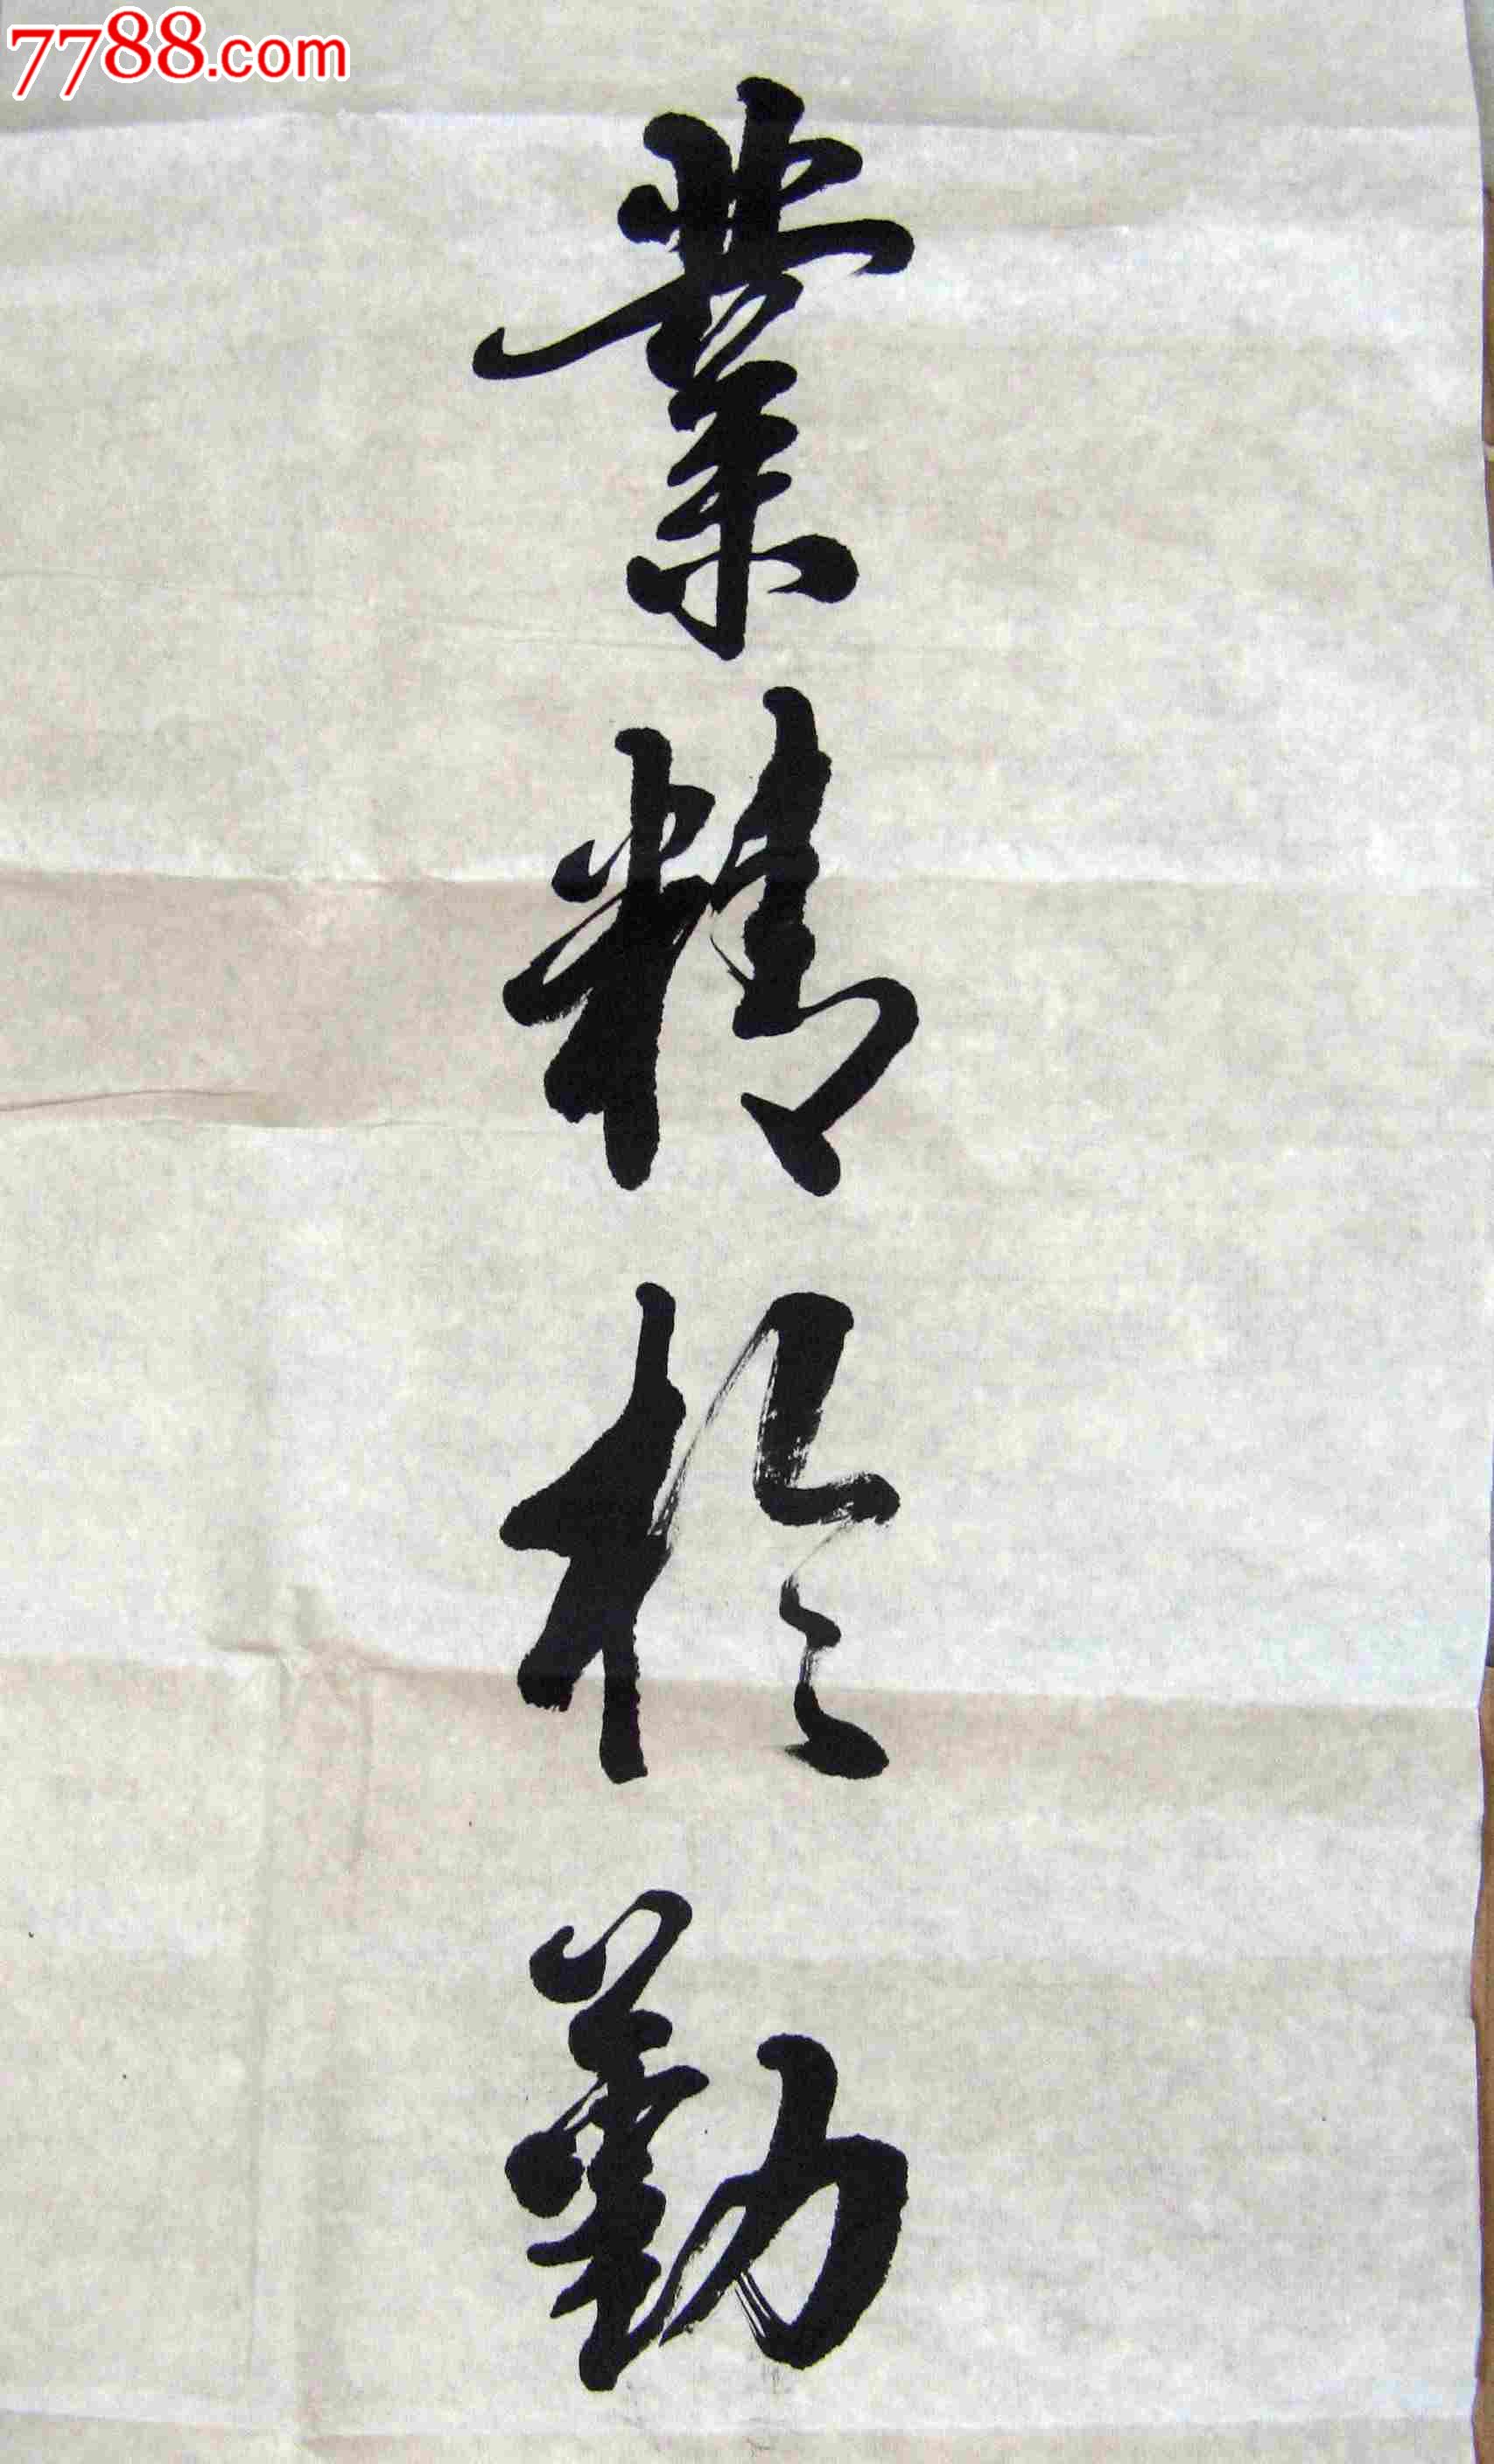 7788.com
業精於勤